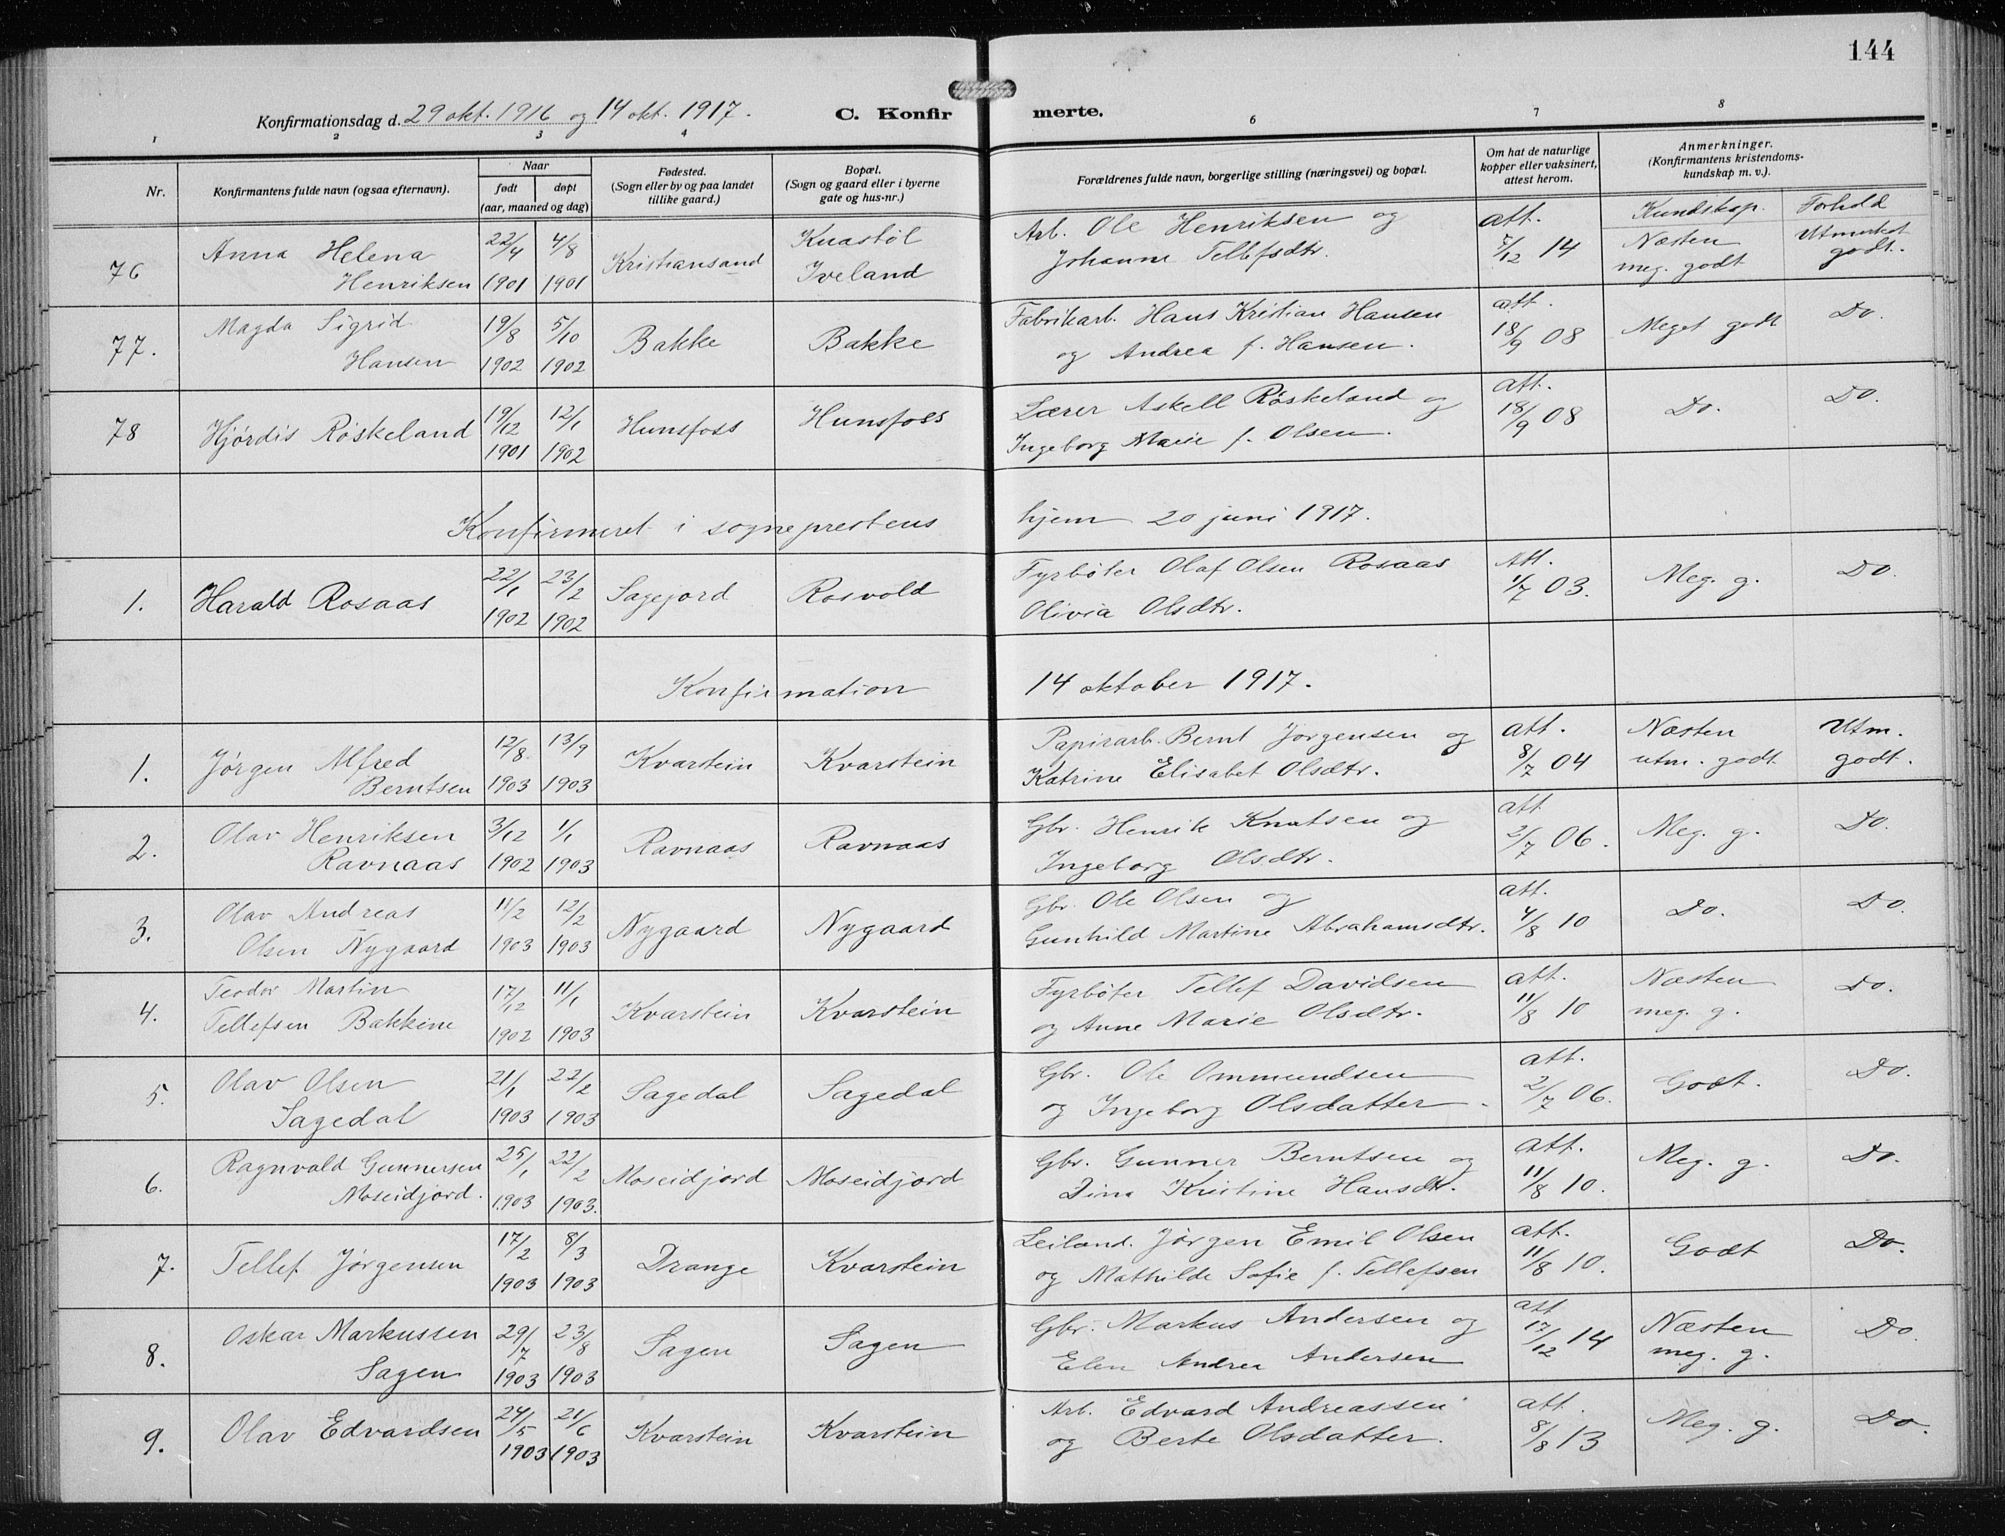 144
Konfirmationsdag d. 29 okt. 1916 og 14 okt. 1917.
C. Konfirmerte.
1 2 3 4 6 7 8
Nr.
Konfirmantens fulde navn (ogsaa efternavn).
Naar
født
døpt
(aar, maaned og dag)
Fødested.
(Sogn eller by og paa landet
tillike gaard.)
Bopæl.
(Sogn og gaard eller i byerne
gate og hus-nr.)
Forældrenes fulde navn, borgerlige stilling (næringsvei) og bopæl.
Om hat de naturlige
kopper eller vaksinert,
attest herom.
Anmerkninger.
(Konfirmantens kristendoms-
kundskap m. v.).
Kundskap. Forhold
76
Anna Helena
Henriksen
22/4 1901
4/8 1901
Kristiansand
Knastøl
Iveland
Arb. Ole Henriksen og
Johanne Tellefsdtr.
att.
5/12 14
Næsten
meg. godt
Utmerket
godt.
77.
Magda Sigrid
Hansen
19/8 1902
5/10 1902
Bakke
Bakke
Fabrikarb. Hans Kristian Hansen
og Andrea f. Hansen.
att.
18/9 08
Meget godt
Do.
78
Hjørdis Røskeland
19/12 1901
12/1 1902
Hunsfoss
Hunsfoss
Lærer Askell Røskeland og
Ingeborg Marie f. Olsen.
att.
18/9 08
Do.
Do.
Konfirmeret i sogneprestens hjem 20 juni 1917.
1.
Harald Rosaas
22/1 1902
23/2 1902
Sagejord
Rosvold
Fyrbøter Olaf Olsen Rosaas
Olivia Olsdtr.
Att.
1/7 03.
Meg. g.
Do.
Konfirmation 14 oktober 1917.
1.
Jørgen Alfred
Berntsen
12/8 1903
13/9 1903
Kvarstein
Kvarstein
Papirarb. Bernt Jørgensen og
Katrine Elisabet Olsdtr.
att.
8/7 04
Næsten
utm. godt
Utm.
godt.
2.
Olav Henriksen
Ravnaas
3/12 1902
1/1 1903
Ravnaas
Ravnaas
Gbr. Henrik Knutsen og
Ingeborg Olsdtr.
att
2/7 06.
Meg. g.
Do.
3.
Olav Andreas
Olsen Nygaard
11/2 1903
12/2 1903
Nygaard
Nygaard
Gbr. Ole Olsen og
Gunhild Martine Abrahamsdtr.
att.
4/8 10
Do.
Do.
4.
Teodor Martin
Tellefsen Bakkine
17/12 1902
11/1 1903
Kvarstein
Kvarstein
Fyrbøter Tellef Davidsen
og Anne Marie Olsdtr.
att.
11/8 10
Næsten
meg. g.
Do.
5.
Olav Olsen
Sagedal
21/1 1903
22/2 1903
Sagedal
Sagedal
Gbr. Ole Ommundsen
og Ingeborg Olsdatter.
att.
2/7 06.
Godt.
Do.
6.
Ragnvald Gunnersen
Moseidjord.
25/1 1903
22/2 1903.
Moseidjord
Moseidjord
Gbr. Gunner Berntsen og
Dina Kristine Hansdtr.
att.
11/8 10.
Meg. g.
Do.
7.
Tellef Jørgensen
17/2 1903
8/3 1903
Drange
Kvarstein
Leiland. Jørgen Emil Olsen
og Mathilde Sofie f. Tellefsen
att.
11/8 10.
Godt
Do.
8.
Oskar Markussen
Sagen
29/7 1903
23/8 1903
Sagen
Sagen
Gbr. Markus Andersen og
Elen Andrea Andersen
att
17/12 14
Næsten
meg. g.
Do
9.
Olav Edvardsen
24/5 1903
21/6 1903
Kvarstein
Kvarstein
Arb. Edvard Andreassen
og Berte Olsdatter.
att.
8/8 13
Meg. g.
Do.